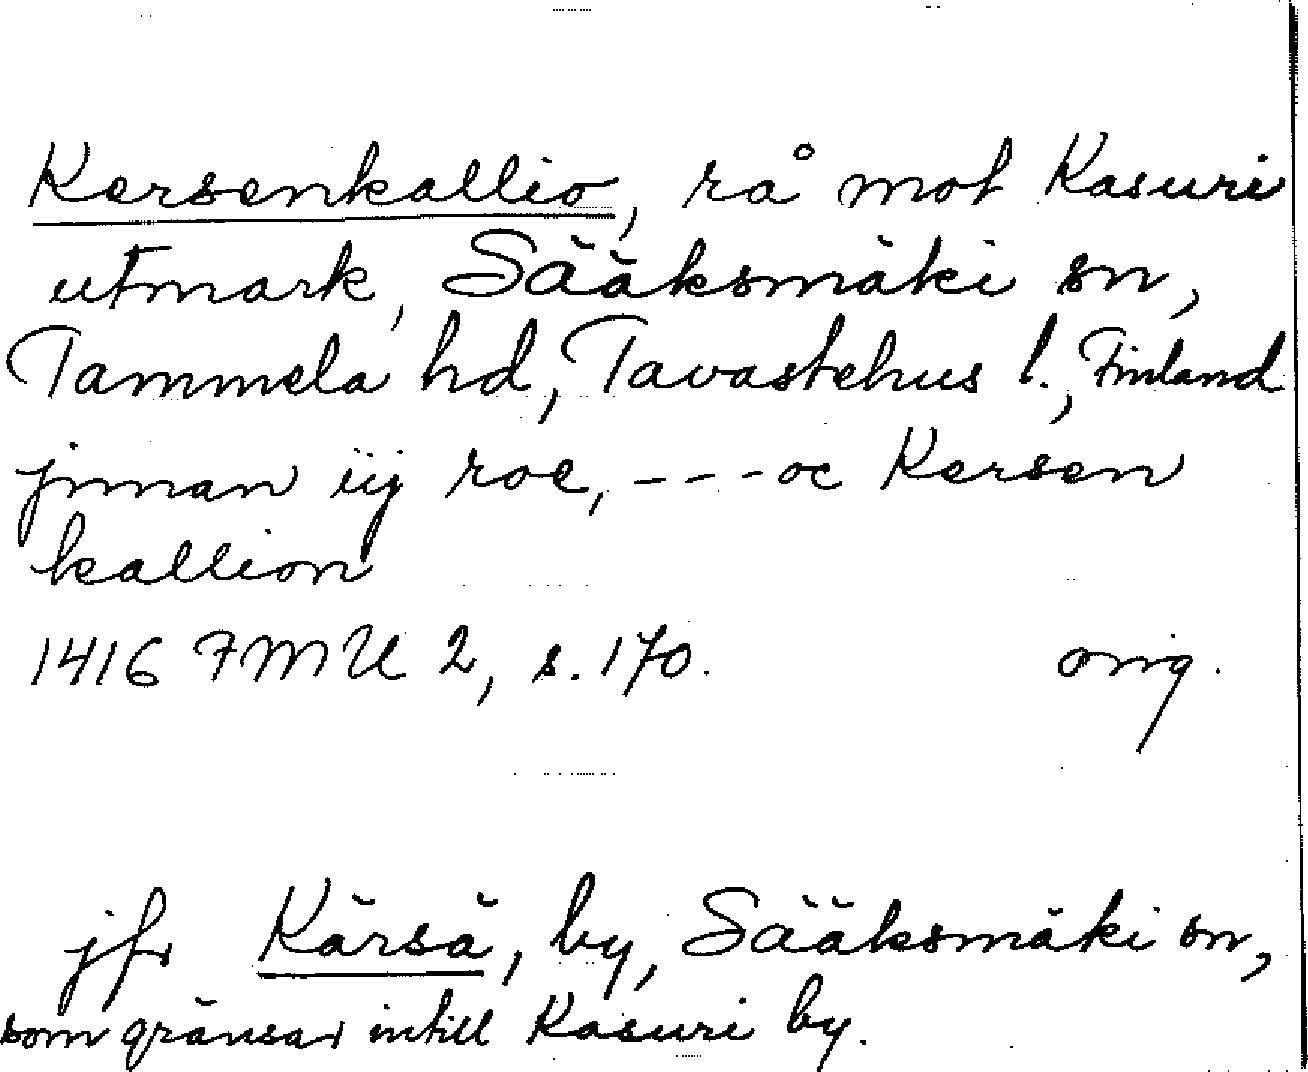 Kersenkallio, rå mot Kasuri
utmark, Sääksmäki sn,
Tammela hd, Tavastehus l., Finland
jnnan iij roe, --- oc Kersen
kallion
1416 FMU 2, s. 170. orig.
jfr Kärsä, by, Sääksmäki sn,
som gränsar intill Kasuri by.